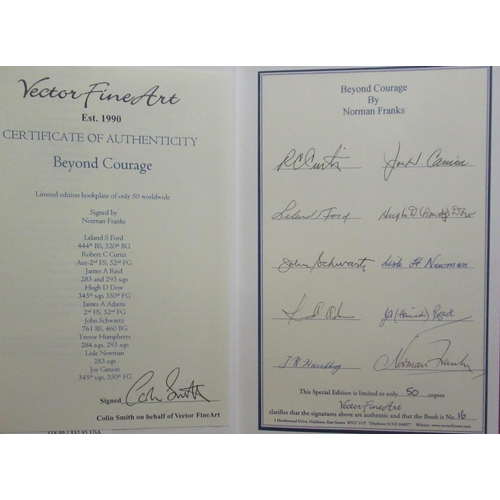 Vector Fine Art
Est. 1990
CERTIFICATE OF AUTHENTICITY
Beyond Courage
Limited edition bookplate of only 50 worldwide
Signed by
Norman Franks
Leland S Ford
444th BS, 320th BG
Robert C Curtis
Ace-2nd FS, 52nd FG
James A Reid
283 and 293 sqn
Hugh D Dow
345th sqn 350th FG
James A Adams
2nd FS, 52nd FG
John Schwartz
761 BS, 460 BG
Trevor Humphreys
284 sqn, 293 sqn
Lisle Newman
283 sqn
Joe Canson
345th sqn, 350th FG
Signed Colin Smith
Colin Smith on behalf of Vector FineArt
£18.99 / $32.95 USA
Beyond Courage
By
Norman Franks
R C Curtis
Leland S Ford
John Schwartz
Lisle Newman
Js (Hamish) Reid
Norman Franks
This Special Edition is limited to only 50 copies
Vector Fine Art
clarifies that the signatures above are authentic and that the Book is No. 16